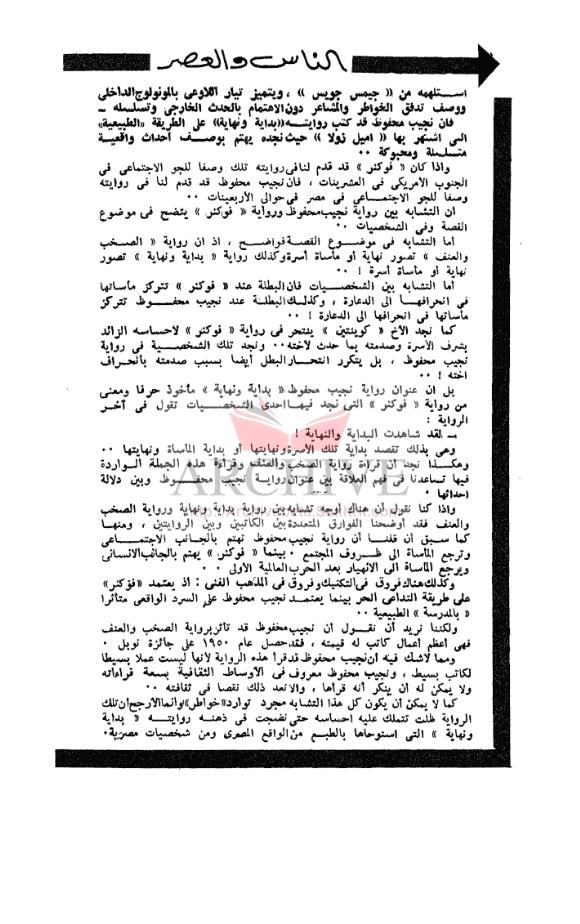 الناس والعصر
استلهمه من «جيمس جويس» ، ويتميز تيار اللاوعى بالمونولوج الداخلى
ووصف تدفق الخواطر والمشاعر دون الاهتمام بالحدث الخارجى وتسلسله ــ
فان نجيب محفوظ قد كتب روايته «بداية ونهاية» على الطريقة «الطبيعية»
التى اشتهر بها «اميل زولا» حيث نجده يهتم بوصف أحداث واقعية
متسلسلة ومحبوكة ٠٠
واذا كان « فوكنر » قد قدم لنا فى روايته تلك وصفا للجو الاجتماعى فى
الجنوب الأمريكى فى العشرينات ، فان نجيب محفوظ قد قدم لنا فى روايته
وصفا للجو الاجتماعى فى مصر فى حوالى الأربعينات ٠٠
ان التشابه بين رواية نجيب محفوظ ورواية « فوكنر » يتضح فى موضوع
القصة وفى الشخصيات ٠٠
أما التشابه فى موضوع القصة فواضح ، اذ ان رواية « الصخب
والعنف » تصور نهاية أو مأساة أسرة وكذلك رواية « بداية ونهاية » تصور
نهاية أو مأساة أسرة ! ٠٠
أما التشابه بين الشخصيات فان البطلة عند « فوكنر » تتركز مأساتها
فى انحرافها الى الدعارة ، وكذلك البطلة عند نجيب محفوظ تتركز
مأساتها فى انحرافها الى الدعارة ! ٠٠
كما نجد الأخ « كوينتين » ينتحر فى رواية « فوكنر » لاحساسه الزائد
بشرف الأسرة وصدمته بما حدث لأخته ٠٠ ونجد تلك الشخصية فى رواية
نجيب محفوظ ، بل يتكرر انتحار البطل أيضا بسبب صدمته بانحراف
اخته ! ٠٠
بل ان عنوان رواية نجيب محفوظ « بداية ونهاية » مأخوذ حرفا ومعنى
من رواية « فوكنر » التى نجد فيها احدى الشخصيات تقول فى آخر
الرواية :
ــ لقد شاهدت البداية والنهاية !
وهى بذلك تقصد بداية تلك الأسرة ونهايتها أو بداية المأساة ونهايتها ٠٠
وهكذا نجد أن قراءة رواية الصخب والعنف وقراءة هذه الجملة الواردة
فيها تساعدنا فى فهم العلاقة بين عنوان رواية نجيب محفوظ وبين دلالة
احداثها ٠
واذا كنا نقول أن هناك أوجه تشابه بين رواية بداية ونهاية ورواية الصخب
والعنف فقد أوضحنا الفوارق المتعددة بين الكاتبين وبين الروايتين ، ومنها
كما سبق أن قلنا أن رواية نجيب محفوظ تهتم بالجانب الاجتماعى
وترجع المأساة الى ظروف المجتمع ٠ بينما « فوكنر » يهتم بالجانب الانسانى
ويرجع المأساة الى الانهيار بعد الحرب العالمية الأولى ٠٠
وكذلك هناك فروق فى التكنيك وفروق فى المذهب الفنى : اذ يعتمد « فوكنر »
على طريقة التداعى الحر بينما يعتمد نجيب محفوظ على السرد الواقعى متأثرا
« بالمدرسة » الطبيعية ٠٠
ولكننا نريد أن نقول أن نجيب محفوظ قد تأثر برواية الصخب والعنف
فهى أعظم أعمال كاتب له قيمته ، فقد حصل عام ١٩٥٠ على جائزة نوبل ٠
ومما لاشك فيه أن نجيب محفوظ قد قرأ هذه الرواية لأنها ليست عملا بسيطا
لكاتب بسيط ، ونجيب محفوظ معروف فى الأوساط الثقافية بسعة قراءاته
ولا يمكن له أن ينكر أنه قرأها ، والا نعد ذلك نقصا فى ثقافته ٠٠
كما لا يمكن أن يكون كل هذا التشابه مجرد توارد «خواطر» وانما الأرجح أن تلك
الرواية ظلت تتملك عليه احساسه حتى نضجت فى ذهنه روايته « بداية
ونهاية » التى استوحاها بالطبع من الواقع المصرى ومن شخصيات مصرية ٠
ARCHIVE